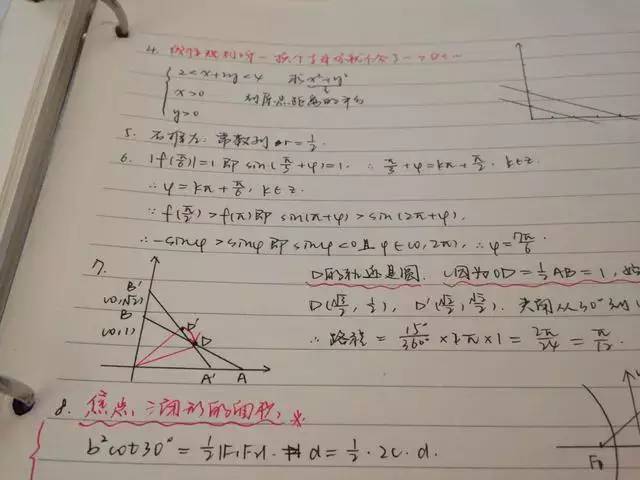 4. 线性规划时一般个
2<x+2y<4 求x²+y²
x>0 到原点距离的平方
y>0
5. 常数列 or r=1/2.
6. |f(π/6)|=1 即 sin(π/3+φ)=1. ∴ π/3+φ=kπ+π/2. k∈z.
∴ φ=kπ+π/6, k∈z.
∵ f(π/2)>f(π) 即 sin(π+φ)>sin(2π+φ).
∴ -sinφ>sinφ 即 sinφ<0 且 φ∈(0,2π), ∴ φ=7π/6.
7. D的轨迹是圆. (因为OD=1/2AB=1,
D(√3/2, 1/2), D'(√2/2, √2/2). 夹角从30°到
∴ 路程 = 15°/360° × 2π × 1 = 2π/24 = π/12.
B'
(0,√2)
B
(0,1)
D'
D
A' A
8. 焦点三角形的面积, ※
b²cot30° = 1/2|F₁F₂|. d = 1/2 · 2c · d.
F₁